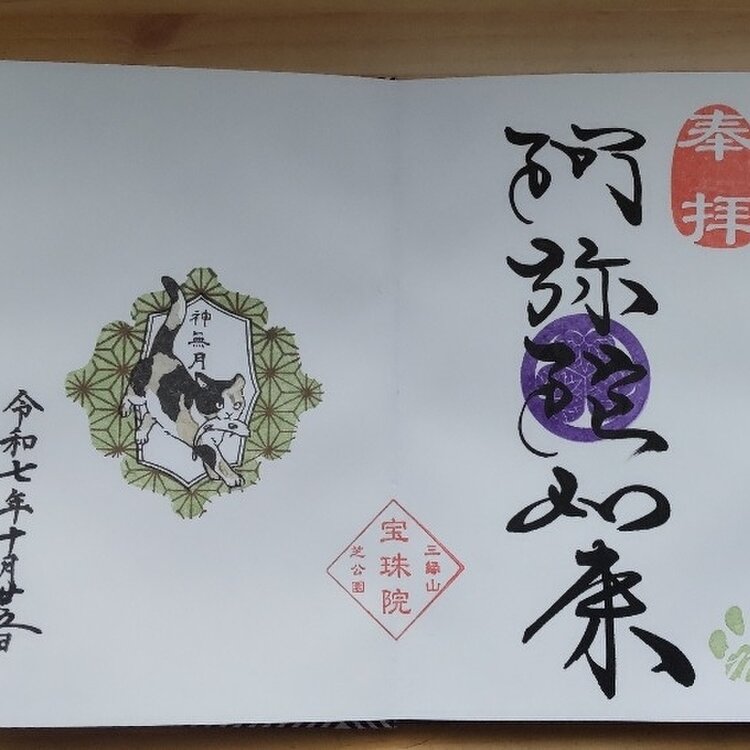 奉拝
阿弥陀如来
三縁山
宝珠院
芝公園
神無月
令和七年十月廿五日